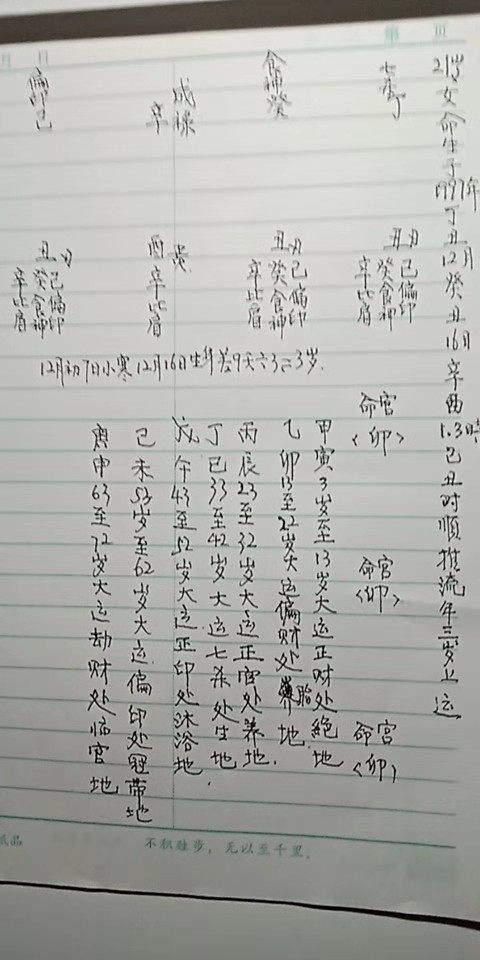 第 页
月 日
21岁女命生于1997年丁丑12月癸丑16日辛酉1.3時己丑时順推流年三岁上运
七杀丁
食神癸
戌禄辛
偏印己
丑
己偏印
癸食神
辛比肩
丑
己偏印
癸食神
辛比肩
酉
辛比肩
丑
己偏印
癸食神
辛比肩
12月初7日小寒12月16日生 差9天 3岁.
命宫<卯>
命宫<卯>
命宫<卯>
甲寅3岁至13岁大运正财处絕地
乙卯13至22岁大运偏财处胎地.
丙辰23至32岁大运正官处养地.
丁巳33至42岁大运七杀处生地.
戊午43至52岁大运正印处沐浴地
己未53岁至62岁大运偏印处冠带地
庚申63至72岁大运劫财处临官地
不积跬步，无以至千里。
纸品